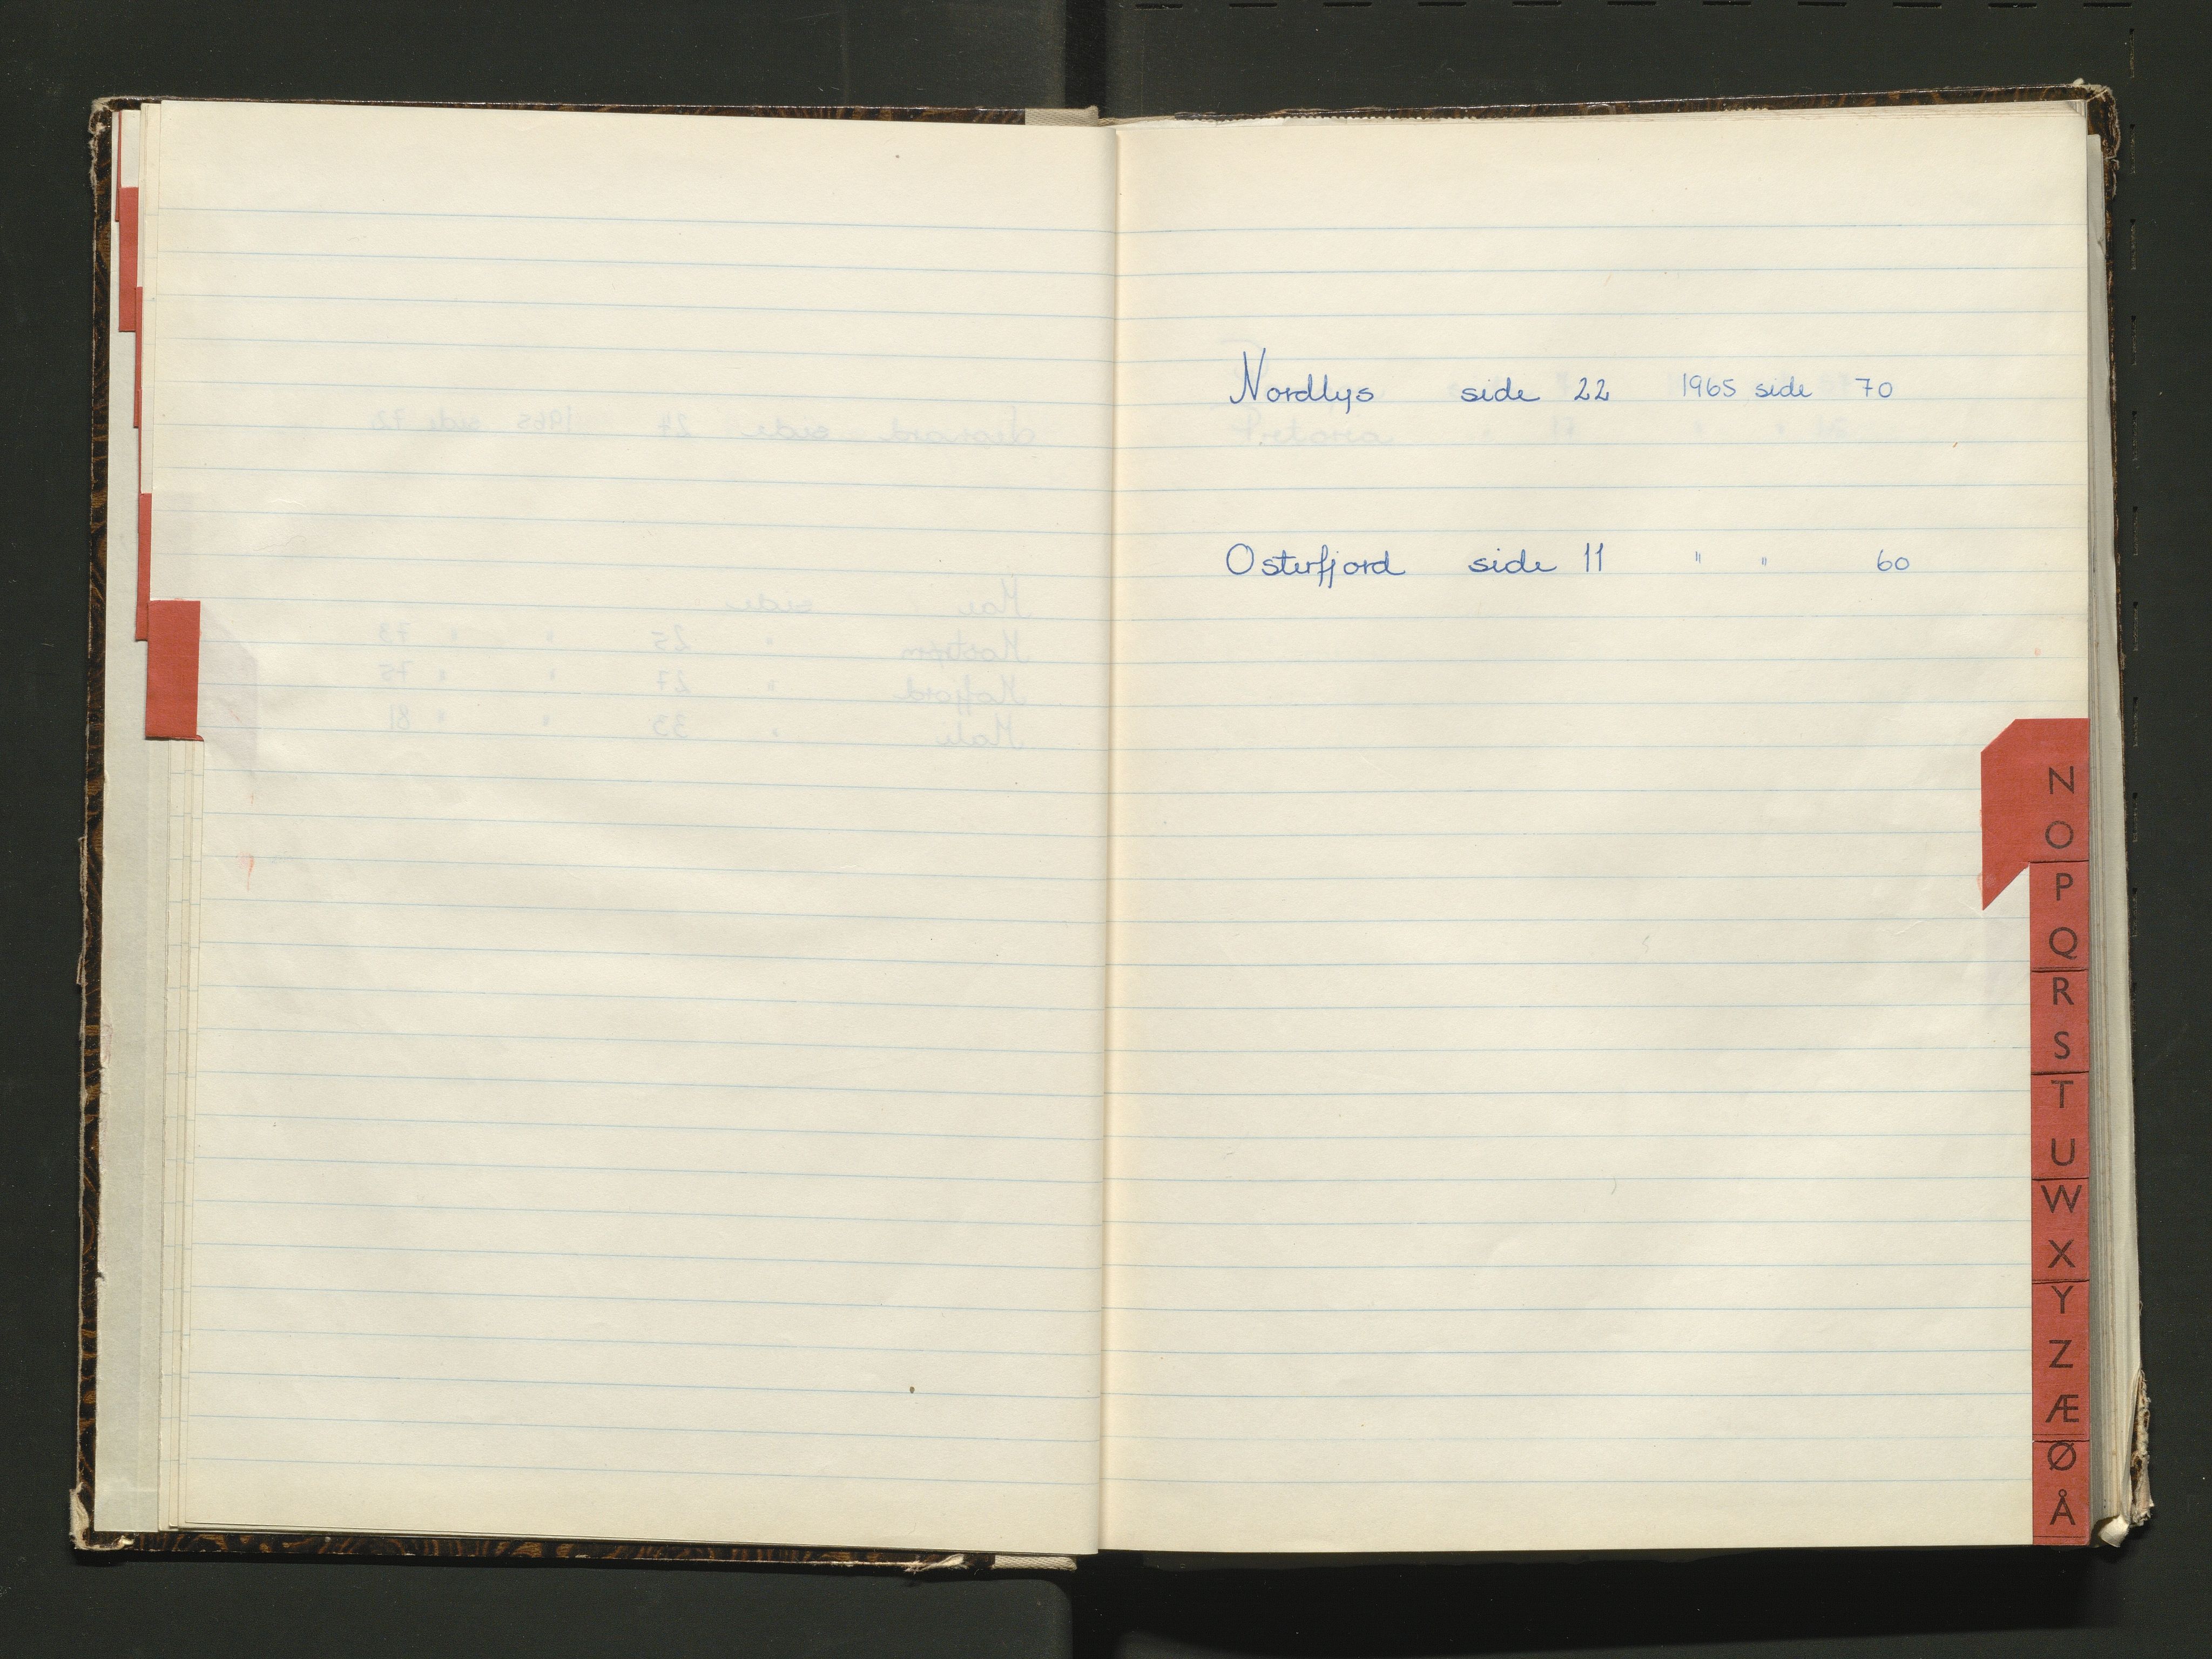 Nordlys side 22 1965 side 70
Osterfjord side 11 " " 60
N
O
P
Q
R
S
T
U
W
X
Y
Z
Æ
Ø
Å